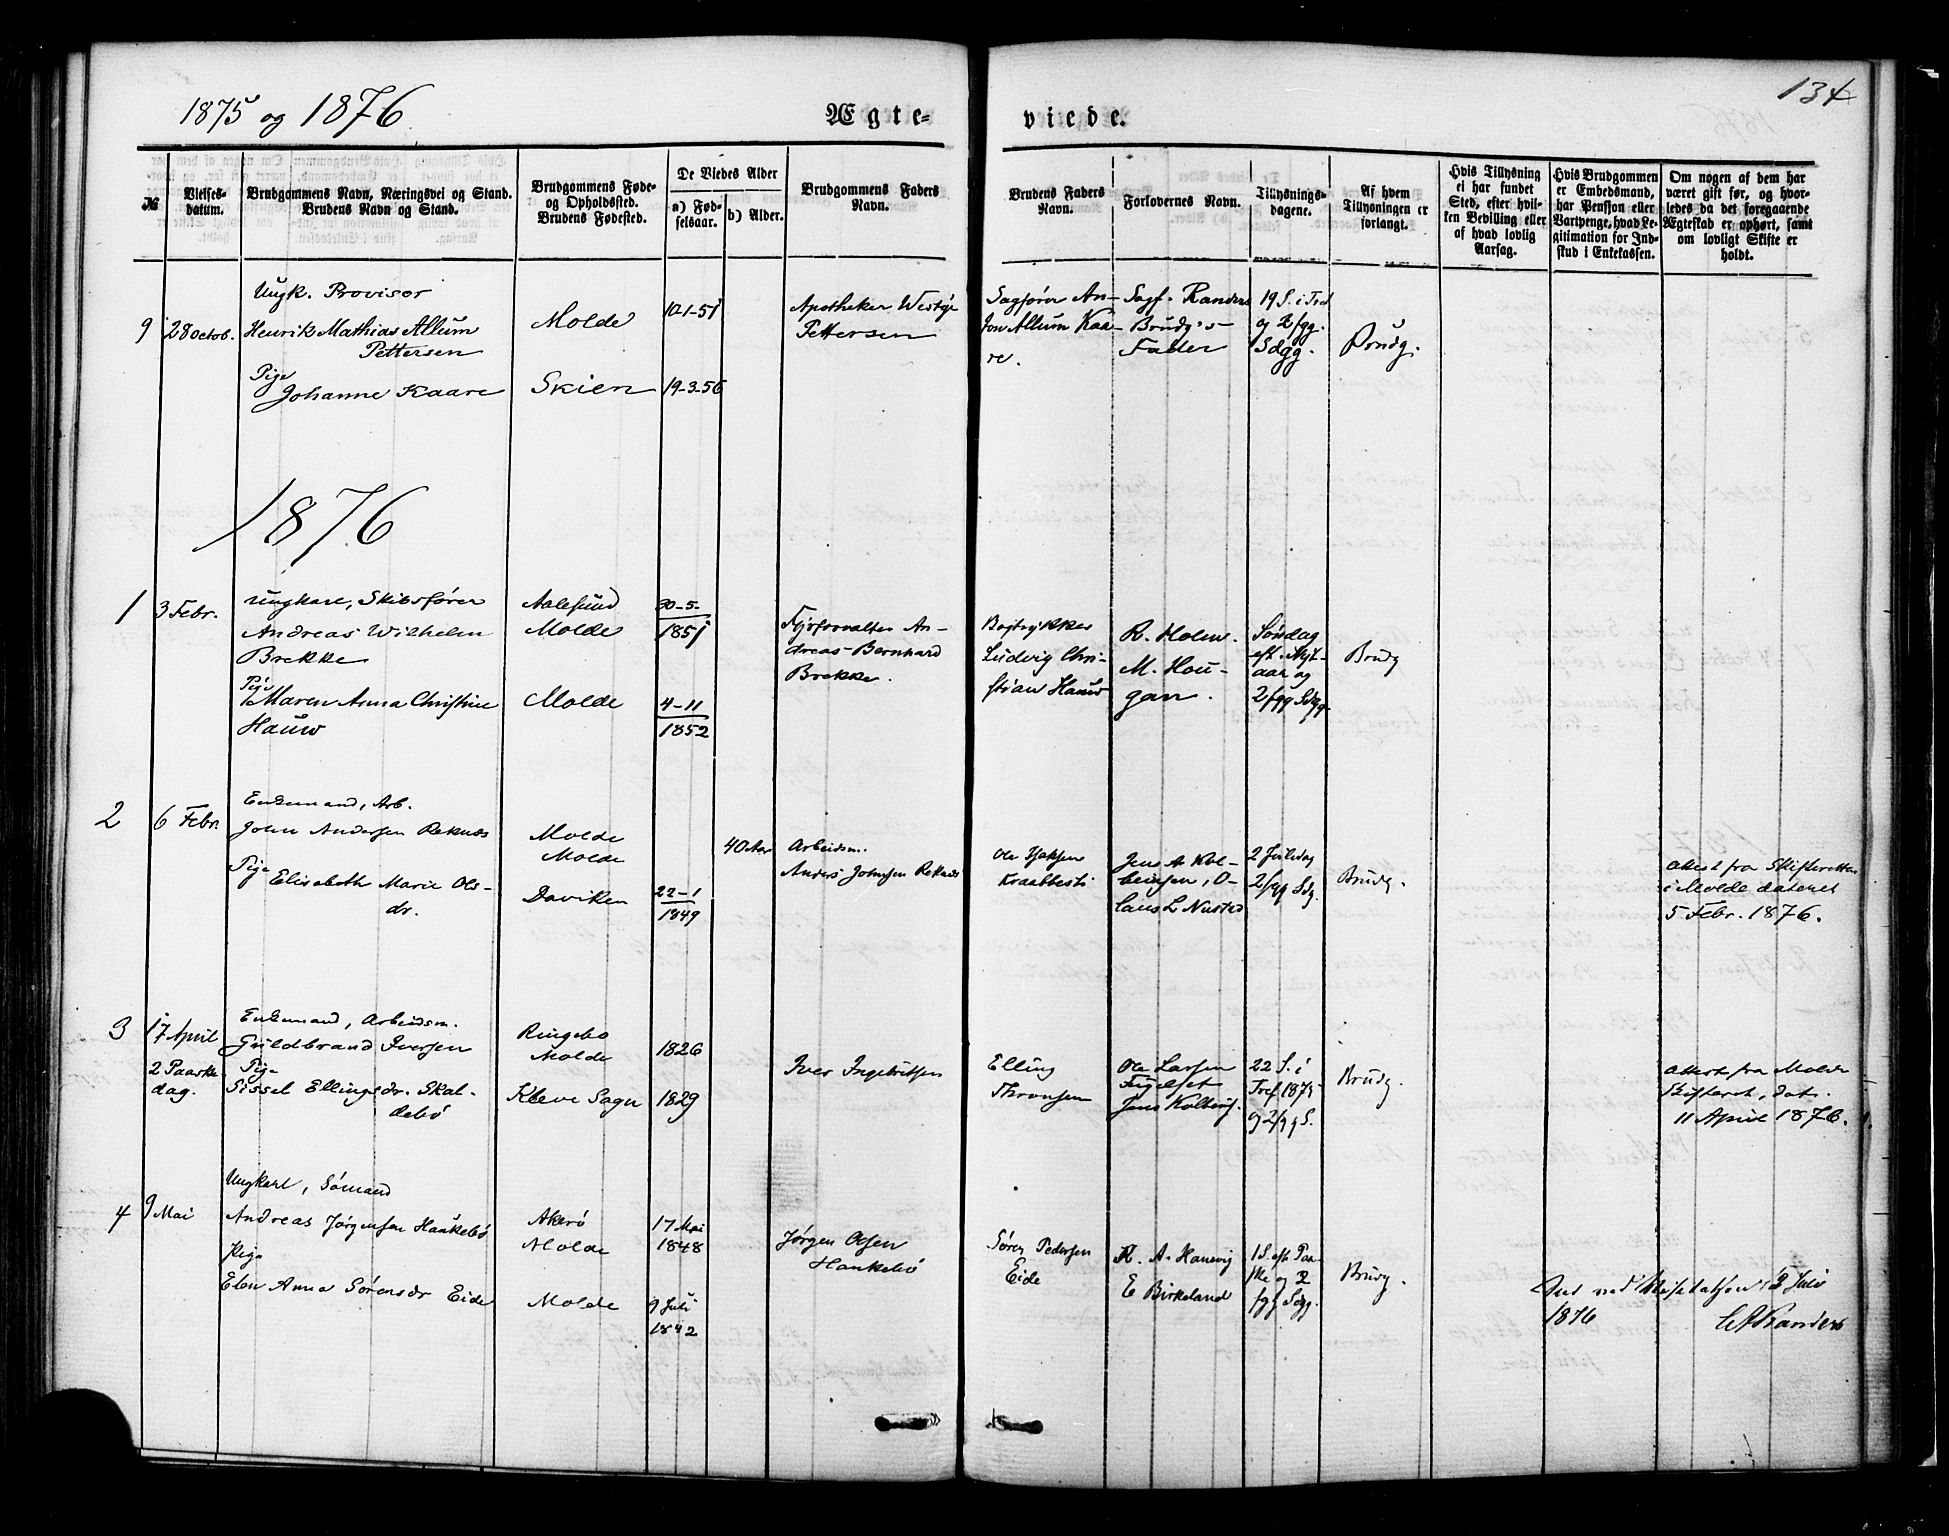 1875 og 1876
Ægteviede.
134
№
Vielsesdatum.
Brudgommens Navn, Næringsvei og Stand.
Brudens Navn og Stand.
Brudgommens Føde-
og Opholdssted.
Brudens Fødested.
De Viedes Alder
a) Fød-
selsaar.
b) Alder.
Brudgommens Faders
Navn.
Brudens Faders
Navn.
Forlovernes Navn.
Tillysnings-
dagene.
Af hvem
Tillysningen er
forlangt.
Hvis Tillysning
ei har fundet
Sted, efter hvil-
ken Bevilling eller
af hvad lovlig
Aarsag.
Hvis Brudgommen
er Embedsmand,
har Pension eller
Vartpenge, hvad Le-
gitimation for Ind-
skud i Enkekassen.
Om nogen af dem har
været gift før, og hvor-
ledes da det foregaaende
Ægteskab er ophørt, samt
om lovligt Skifte er
holdt.
9
28 Octob.
Ungk. Provisor
Henrik Mathias Allum
Pettersen
Pige
Johanne Kaare
Molde
Skien
10-1-51
19-3-56
Apotheker Westye
Pettersen
Sagfører An-
ton Allum Kaa-
re.
Sagf. Randers
Brudg's
Fader
19 S. i Tref
og 2 fgg.
Sdgg.
Brudg.
1876
1
3 Febr.
Ungkarl, Skibsfører
Andreas Wilhelm
Brekke
Pige
Maren Anna Christine
Hauw
Aalesund
Molde
Molde
30-5-
1851
4-11
1852
Fyrforvalter An-
dreas Bernhard
Brekke.
Bogtrykker
Ludvig Chri-
stian Hauw
R. Holm.
M. Hou-
gan.
Søndag
eft. Nyt-
aar og
2 fgg Sdgg.
Brudg
2
6 Febr.
Enkemand, Arb.
John Andersen Reknæs
Pige
Elisabeth Marie Ols-
dr.
Molde
Molde
Daviken
40 Aar
22-1
1849
Arbeidsm.
Anders Johnsen Reknæs
Ole
Jens A Kol-
beinsen, O-
laus L Nustad
2 Juledag
2 fgg Sdg.
Brudg.
Attest fra Skifteretten
i Molde dateret
5 Febr. 1876.
3
17 April
2 Paaske
dag.
Enkemand, Arbeidsm.
Guldbrand Iversen
Pige
Sissel Ellingsdr. Skal-
debø
Ringebo
Molde
Kleve Sogn
1826
1829
Iver Ingebritsen
Elling
Thronsen
Ole Larsen
Jens Kolbeins.
22 S. i
Tref 1875
og 2 fgg S.
Brudg.
Attest fra Molde
Skifteret, dat.
11 April 1876.
4
9 Mai
Ungkarl, Sømand
Andreas Jørgensen Haukebø
Pige
Elen Anna Sørensdr Eide
Akerø
Molde
Molde
17 Mai
1848
9 Juli
1842
Jørgen Olsen
Haukebø
Søren Pedersen
Eide
R. A. Hanevig
E Birkeland
1 S. eft Paa-
ske og 2
fgg Sdgg.
Brudg.
Sed ved Visitatsen 12 Juli
1876